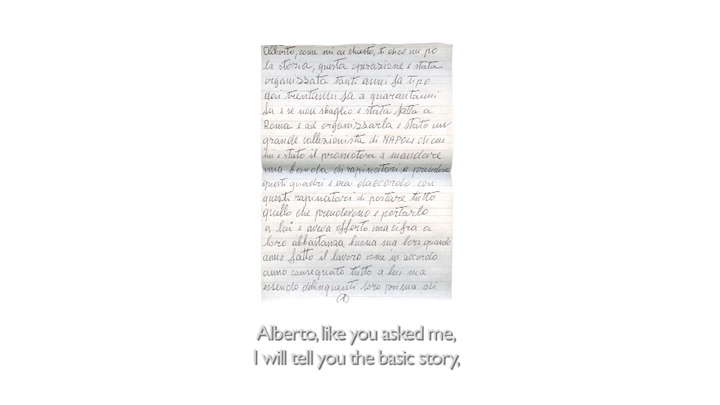 Alberto, come mi ai chiesto, ti dico un po
la storia, questa operazione è stata
organizzata tanti anni fa tipo
don trentanni fa a quarantanni
fa e se non sbaglio è stata fatta a
Roma e ad organizzarla è stato un
grande collezionista di NAPOLI che
lui è stato il promotore a mandare
una banda di rapinatori a prendere
questi quadri e era daccordo con
questi rapinatori di portare tutto
quello che prendevono e portarlo
a lui e aveva offerto una cifra a
loro abbastanza buona ma loro quando
anno fatto il lavoro come in accordo
anno consegnato tutto a lui ma
essendo delinquenti loro prima di
Alberto, like you asked me,
I will tell you the basic story,